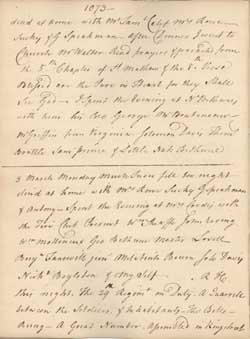 1073
dined at home with Mr Saml Calef Mrs Rowe
Sucky & G Speakman after Dinner I went to
Church Mr Walter Read prayers & preached from
the 5th Chapter of St Mathew & the 8th Verse
Blessed are the Pure in Heart for they Shall
See God I Spent the Evening at
with him his Geo Bethune
Mr Griffin from Virginia Solomon Davis Thos
Brattle
3 March Monday Much Snow fell last night
dined at home with Mrs Rowe Sucky & G Speakman
& Antony Spent the Evening at Mrs Cordis with
the Fire Club Present Wm Sheaffe John Waring
Wm Molineux Geo Bethune Master Lovell
Benj Faneuil junr Ambrose Vincent Job Davis
Nichs Boylston & My Self
this night The 29th Regimt on Duty A Quarrell
between the Soldiers & Inhabitants The Bells
Rung A Great Number Assembled in Kingstreet